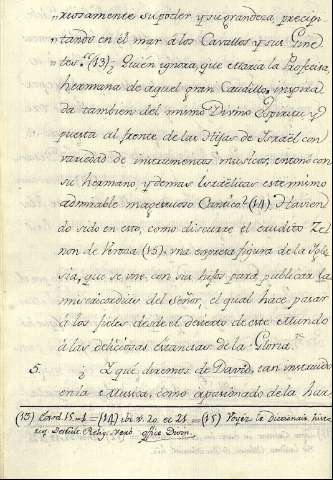 "riosamente su poder y su grandeza, precipi-
"tando en el mar á los Cavallos y sus Gine-
"tes." (13) ¿Quién ignora, que Maria la Profetisa,
hermana de aquel gran Caudillo, inspira-
da tambien del mismo Divino Espiritu, y
puesta al frente de las Hijas de Israël con
variedad de instrumentos musicos, entonó con
su hermano, y demas Israëlitas este mismo
admirable magestuoso Cantico? (14) Havien-
do sido en esto, como discurre el erudito Ze-
non de Verona (15), una expresa figura de la Igle-
sia, que se une con sus hijos para publicar la
misericordias del Señor, el qual hace pasar
á los fieles desde el desierto de este Mundo
á las deliciosas Estancias de la Gloria.
5. ¿Y que diremos de David, tan instruido
en la Musica, como apasionado de la har-
(13) Exod. 15. v. 1 = (14) ibi v. 20. et 21. = (15) Voyez le Diccionair
Relig. verb. office Divin.